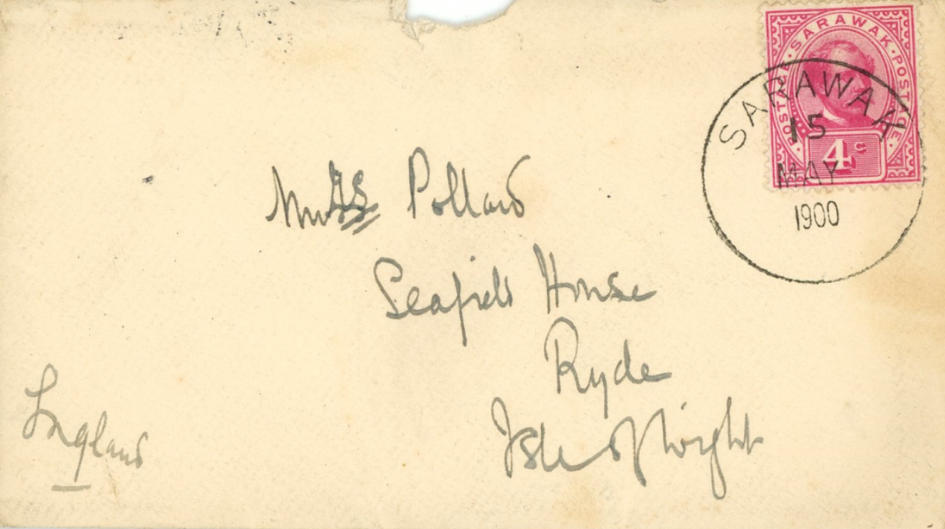 SARAWAK POSTAGE POSTAGE
4c
SARAWAK
15
MAY
1900
Pollard
Seafield House
Ryde
Isle of Wight
England